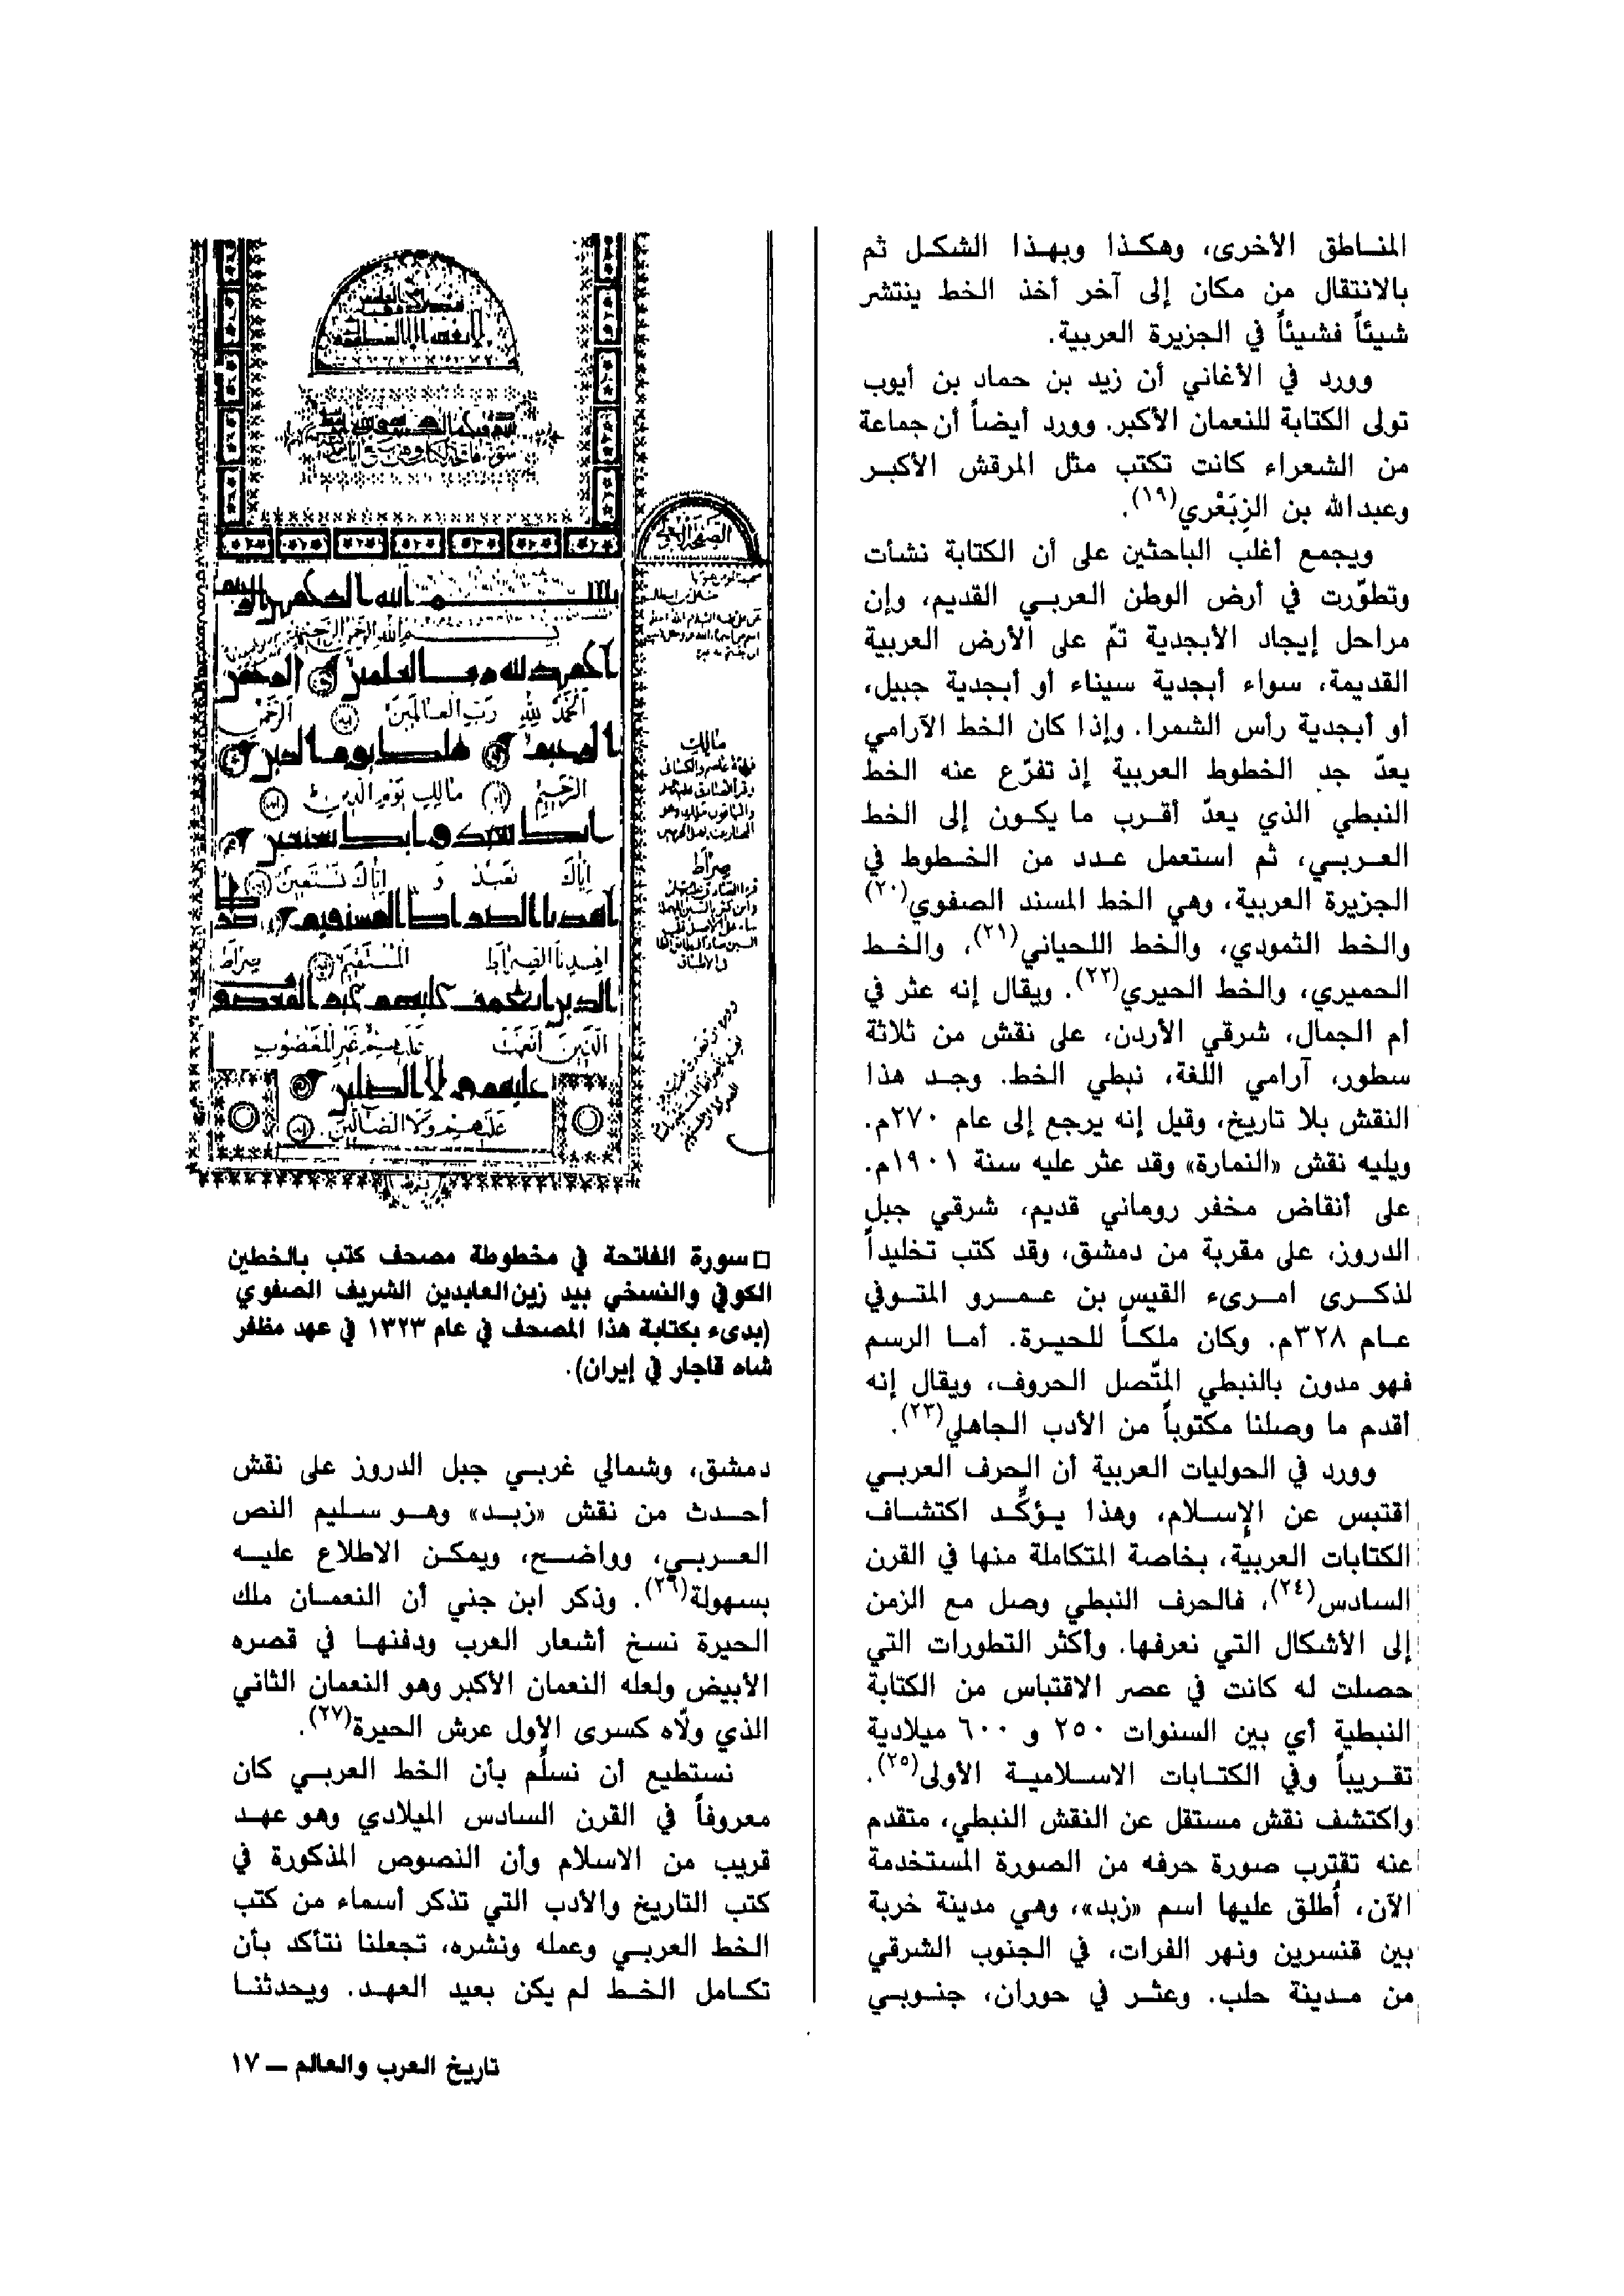 المناطق الأخرى، وهكذا وبهذا الشكل ثم
بالانتقال من مكان إلى آخر أخذ الخط ينتشر
شيئاً فشيئاً في الجزيرة العربية.
وورد في الأغاني أن زيد بن حماد بن أيوب
تولى الكتابة للنعمان الأكبر. وورد أيضاً أن جماعة
من الشعراء كانت تكتب مثل المرقش الأكبر
وعبدالله بن الزِبَعْري(١٩).
ويجمع أغلب الباحثين على أن الكتابة نشأت
وتطوّرت في أرض الوطن العربي القديم، وإن
مراحل إيجاد الأبجدية تمّ على الأرض العربية
القديمة، سواء أبجدية سيناء أو أبجدية جبيل،
أو أبجدية رأس الشمرا. وإذا كان الخط الآرامي
يعدّ جد الخطوط العربية إذ تفرّع عنه الخط
النبطي الذي يعدّ أقرب ما يكون إلى الخط
العربي، ثم استعمل عدد من الخطوط في
الجزيرة العربية، وهي الخط المسند الصفوي(٢٠)
والخط الثمودي، والخط اللحياني(٢١)، والخط
الحميري، والخط الحيري(٢٢). ويقال إنه عثر في
أم الجمال، شرقي الأردن، على نقش من ثلاثة
سطور، آرامي اللغة، نبطي الخط. وجد هذا
النقش بلا تاريخ، وقيل إنه يرجع إلى عام ٢٧٠م.
ويليه نقش «النمارة» وقد عثر عليه سنة ١٩٠١م.
على أنقاض مخفر روماني قديم، شرقي جبل
الدروز، على مقربة من دمشق، وقد كتب تخليداً
لذكرى امرىء القيس بن عمرو المتوفي
عام ٣٢٨م. وكان ملكاً للحيرة. أما الرسم
فهو مدون بالنبطي المتّصل الحروف، ويقال إنه
أقدم ما وصلنا مكتوباً من الأدب الجاهلي(٢٣).
وورد في الحوليات العربية أن الحرف العربي
اقتبس عن الإسلام، وهذا يؤكّد اكتشاف
الكتابات العربية، بخاصة المتكاملة منها في القرن
السادس(٢٤)، فالحرف النبطي وصل مع الزمن
إلى الأشكال التي نعرفها. وأكثر التطورات التي
حصلت له كانت في عصر الاقتباس من الكتابة
النبطية أي بين السنوات ٢٥٠ و ٦٠٠ ميلادية
تقريباً وفي الكتابات الاسلامية الأولى(٢٥).
واكتشف نقش مستقل عن النقش النبطي، متقدم
عنه تقترب صورة حرفه من الصورة المستخدمة
الآن، أُطلق عليها اسم «زبد»، وهي مدينة خربة
بين قنسرين ونهر الفرات، في الجنوب الشرقي
من مدينة حلب. وعثر في حوران، جنوبي
الصحيفة الأولى
بسم الله الرحمن الرحيم
بسم الله الرحمن الرحيم
الحمد لله رب العلمين الرحمن
اَلْحَمْدُ لِلّٰهِ رَبِّ الْعَالَمِينَ اَلرَّحْمٰنِ
الرحيم ملك يوم الدين
اَلرَّحِيمِ مَالِكِ يَوْمِ الدِّينِ
اياك نعبد و اياك نستعين
إِيَّاكَ نَعْبُدُ وَ إِيَّاكَ نَسْتَعِينُ
اهدنا الصراط المستقيم صراط
اِهْدِنَا الصِّرَاطَ الْمُسْتَقِيمَ صِرَاطَ
الذين انعمت عليهم غير المغضوب
الَّذِينَ أَنْعَمْتَ عَلَيْهِمْ غَيْرِ الْمَغْضُوبِ
عليهم و لا الضالين
عَلَيْهِمْ وَلَا الضَّالِّينَ
مَالِكِ
صِرَاطَ
□ سورة الفاتحة في مخطوطة مصحف كتب بالخطين
الكوفي والنسخي بيد زين العابدين الشريف الصفوي
(بدىء بكتابة هذا المصحف في عام ١٣٢٣ في عهد مظفر
شاه قاجار في إيران).
دمشق، وشمالي غربي جبل الدروز على نقش
أحدث من نقش «زبد» وهو سليم النص
العربي، وواضح، ويمكن الاطلاع عليه
بسهولة(٢٦). وذكر ابن جني أن النعمان ملك
الحيرة نسخ أشعار العرب ودفنها في قصره
الأبيض ولعله النعمان الأكبر وهو النعمان الثاني
الذي ولّاه كسرى الأول عرش الحيرة(٢٧).
نستطيع أن نسلّم بأن الخط العربي كان
معروفاً في القرن السادس الميلادي وهو عهد
قريب من الاسلام وأن النصوص المذكورة في
كتب التاريخ والأدب التي تذكر أسماء من كتب
الخط العربي وعمله ونشره، تجعلنا نتأكد بأن
تكامل الخط لم يكن بعيد العهد. ويحدثنا
تاريخ العرب والعالم – ١٧